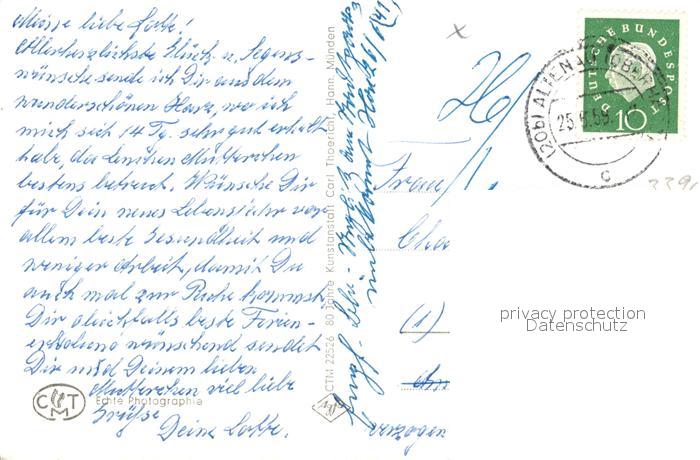 Meine liebe Lotte!
Allerherzlichste Glück- u. Segens-
wünsche sende ich Dir aus dem
wunderschönen Harz, wo ich
mich seit 14 Tg. sehr gut erholt
habe, da Lenchen Mütterchen
bestens betreut. Wünsche Dir
für Dein neues Lebensjahr vor
allem beste Gesundheit und
weniger Arbeit, damit Du
auch mal zur Ruhe kommst.
Dir gleichfalls beste Ferien-
erholung wünschend sendet
Dir und Deinem lieben
Mütterchen viel liebe
Grüsse
Deine Lotte.
CTM
Echte Photographie
CTM 22526 80 Jahre Kunstanstalt Carl Thoericht, Hann. Münden
DEUTSCHE BUNDESPOST
10
(20b) ALTENAU (OBERHARZ)
25.6.59
c
Frau
Cha
(1)
verzogen
339
privacy protection
Datenschutz